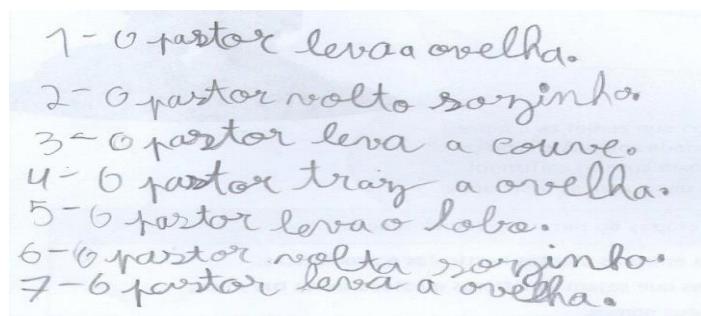 1 - O pastor leva a ovelha.
2 - O pastor volto sozinho.
3 - O pastor leva a couve.
4 - O pastor traiz a ovelha.
5 - O pastor leva o lobo.
6 - O pastor volta sozinho.
7 - O pastor leva a ovelha.